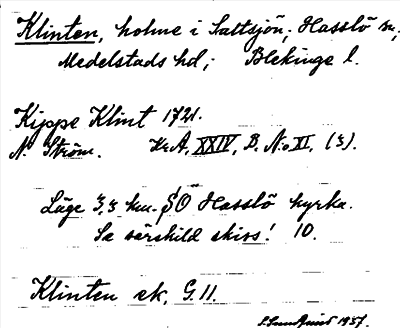 Klinten, holme i Saltsjön; Hasslö sn,
Medelstads hd; Blekinge l.
Kippe Klint 1721.
N. Ström. Kr.A, XXIV, B. No XI, (3).
Läge 3,3 km. SO Hasslö kyrka.
Se särskild skiss! 10.
Klinten ek. G.11.
1937.